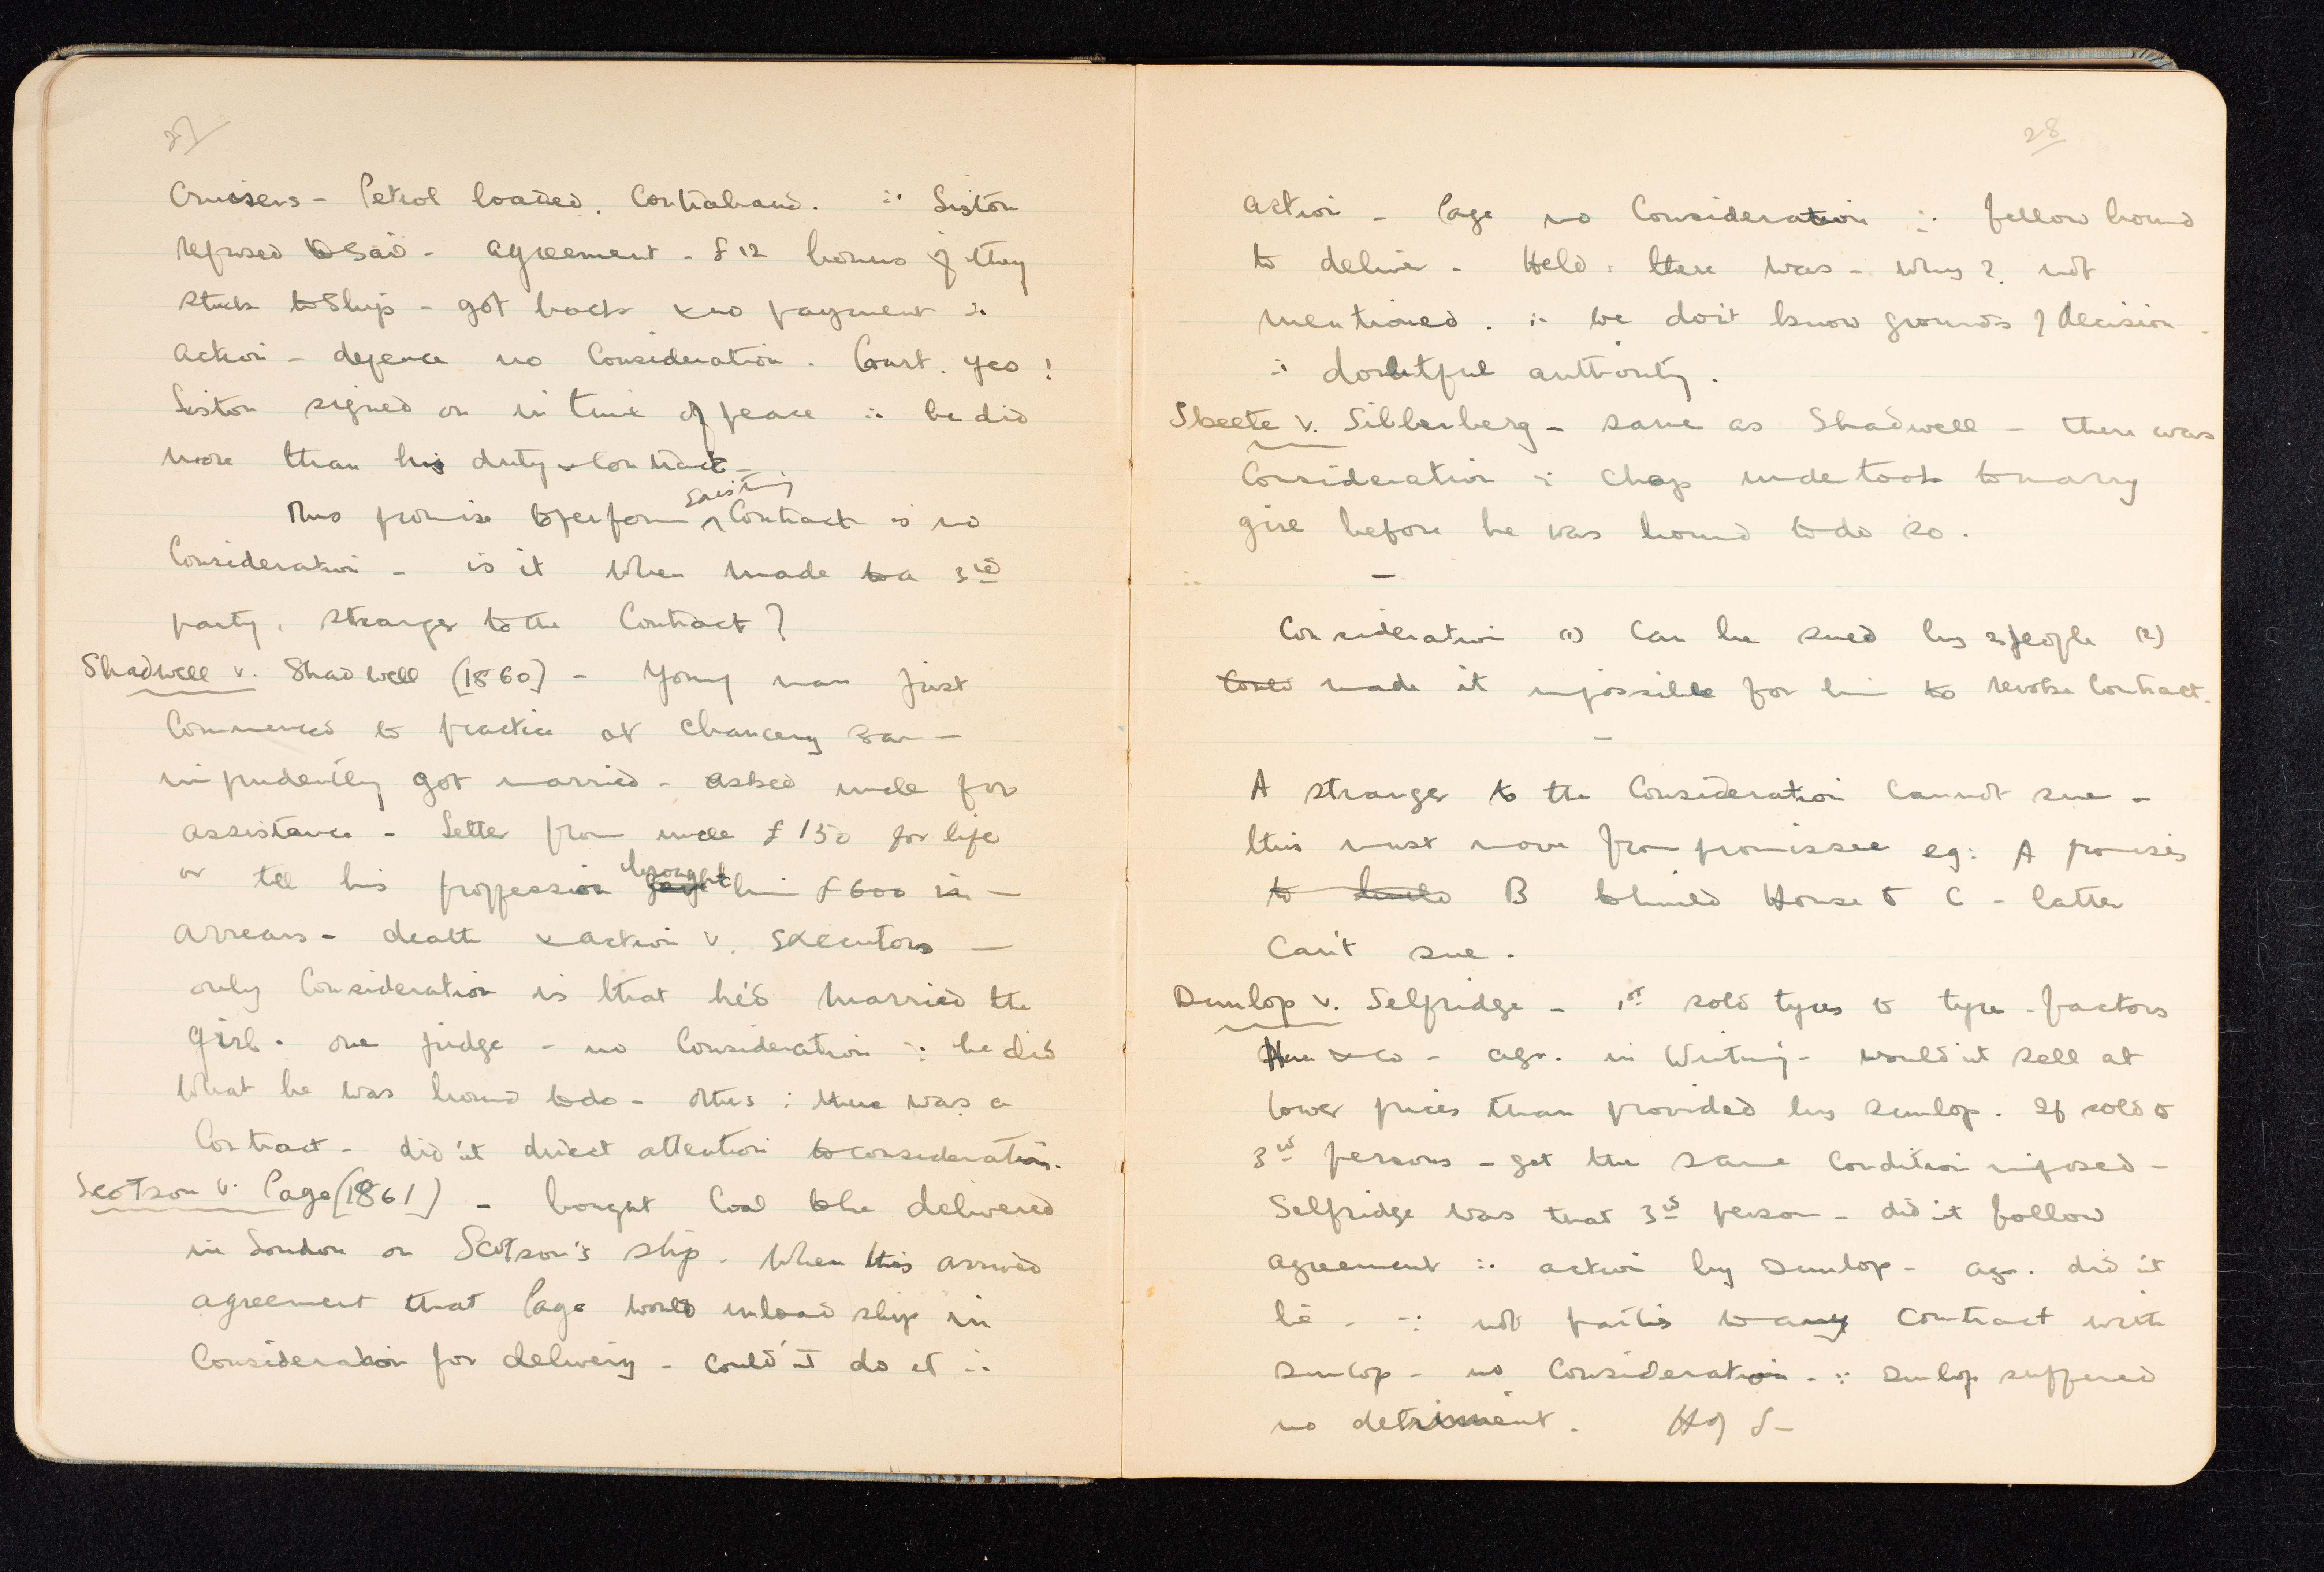 27
Cruisers - Petrol loaded. Contraband. ∴ Liston
refused to sail - agreement - £12 bonus if they
stuck to ship - got back & no payment ∴
action - defence no consideration. Court. yes!
Liston signed on in time of peace ∴ he did
more than his duty & contract -
Thus promise to perform existing contract is no
Consideration - is it when made to a 3rd
party, stranger to the contract?
Shadwell v. Shadwell (1860) - Young man just
commenced to practice at Chancery Bar -
imprudently got married - asked uncle for
assistance - Letter from uncle £150 for life
or till his proffession brought him £600 in -
arrears - death & action v. executors -
only consideration is that he'd married the
girl. one judge - no consideration ∵ he did
what he was bound to do - others: there was a
contract - did'nt direct attention to consideration.
Scotson v. Page (1861) - bought coal to be delivered
in London on Scotson's ship. When this arrived
agreement that Page would unload ship in
consideration for delivery - could'nt do it ∴
28
action - Page no consideration ∵ fellow bound
to deliver. Held: there was - why? not
mentioned. ∴ we don't know grounds of decision.
∴ doubtful authority.
Skeete v. Silberberg - same as Shadwell - there was
consideration ∵ chap undertook to marry
girl before he was bound to do so.
Consideration (1) Can be sued by 2 people (2)
could made it impossible for him to revoke contract.
A stranger to the consideration cannot sue -
this must move from promissee eg: A promises
to B to build House to C - latter
can't sue.
Dunlop v. Selfridge - 1st sold tyres to tyre-factors
& Co - agr. in writing - would'nt sell at
lower prices than provided by Dunlop. If sold to
3rd persons - get the same condition imposed -
Selfridge was that 3rd person - did'nt follow
agreement ∴ action by Dunlop - ag. did'nt
lie - ∵ not parties to any contract with
Dunlop - no consideration. ∵ Dunlop suffered
no detriment. H of L -